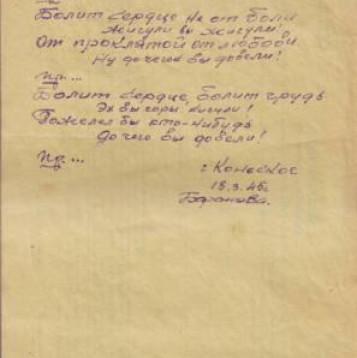 Болит сердце не от боли
Жигули вы жигули!
От проклятой от любови
Ну до чего вы довели!
Пр...
Болит сердце, болит грудь
Эх вы горы, жигули!
Пожалел бы кто-нибудь
До чего вы довели!
Пр...
г. Каневское
18.3.46г.